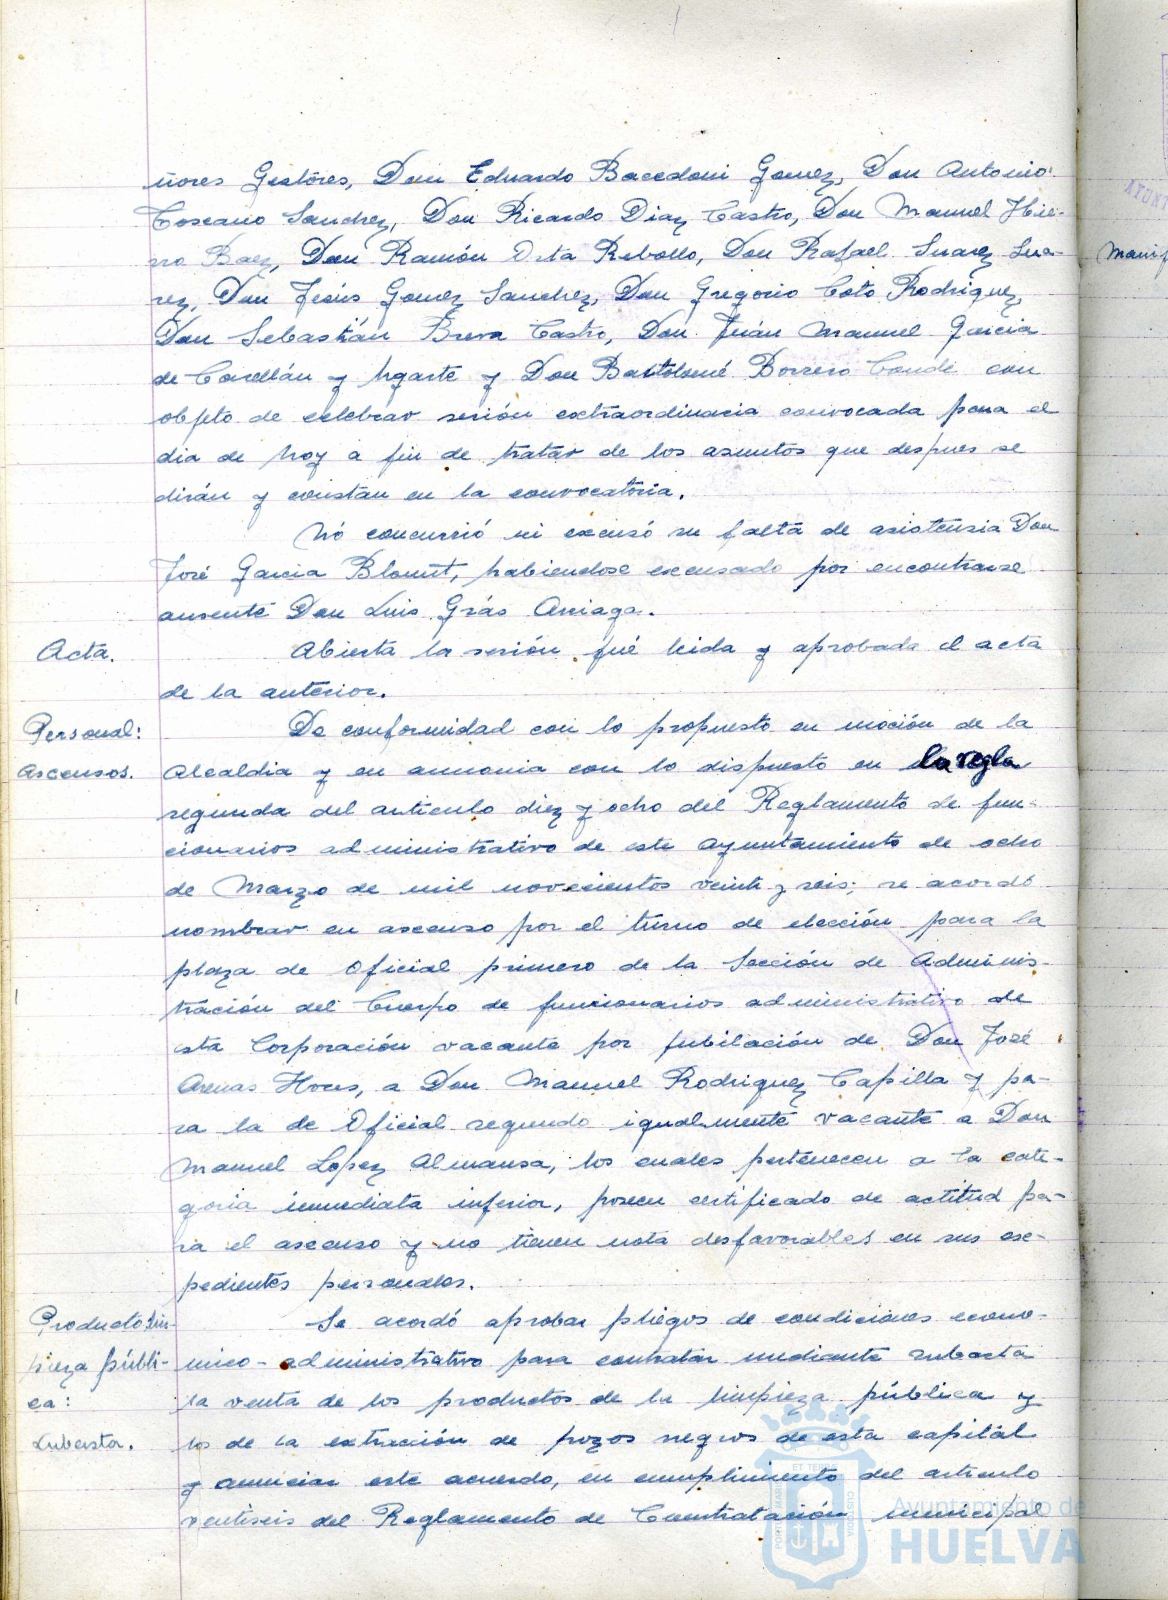 ñores Gestores, Don Eduardo Bacedoni Gomez, Don Antonio
Toscano Sanchez, Don Ricardo Diaz Castro, Don Manuel Hie-
rro Baez, Don Ramón Orta Rebollo, Don Rafael Suarez Sua-
rez, Don Jesús Gomez Sanchez, Don Gregorio Coto Rodriguez,
Don Sebastián Breva Castro, Don Juán Manuel Garcia
de Castellán y Ugarte y Don Bartolomé Borrero Conde con
objeto de celebrar sesión extraordinaria convocada para el
dia de hoy a fin de tratar de los asuntos que despues se
dirán y constan en la convocatoria.
No concurrió ni excusó su falta de asistensia Don
José Garcia Blount, habiendose excusado por encontrarse
ausente Don Luis Grás Arriaga.
Acta.
Abierta la sesión fué leida y aprobada el acta
de la anterior.
Personal:
Ascensos.
De conformidad con lo propuesto en moción de la
Alcaldia y en armonia con lo dispuesto en la regla
segunda del articulo diez y ocho del Reglamento de fun-
cionarios administrativo de este Ayuntamiento de ocho
de Marzo de mil novecientos veinte y seis; se acordó
nombrar en ascenso por el turno de elección para la
plaza de Oficial primero de la Sección de Adminis-
tración del Cuerpo de funcionarios administrativo de
esta Corporación vacante por jubilación de Don José
Arenas Hoces, a Don Manuel Rodriguez Capilla y pa-
ra la de Oficial segundo igualmente vacante a Don
Manuel Lopez Almansa, los cuales pertenecen a la cate-
goria inmediata inferior, poseen certificado de actitud pa-
ra el ascenso y no tienen nota desfavorables en sus ese-
pedientes personales.
Producto lim-
pieza públi-
ca:
Subasta.
Se acordó aprobar pliegos de condiciones econo-
mico-administrativo para contratar mediante subasta
la venta de los productos de la limpieza pública y
los de la extracción de pozos negros de esta capitál
y anunciar este acuerdo, en cumplimiento del articulo
ventiseis del Reglamento de Contratación municipal
Ayuntamiento de
HUELVA